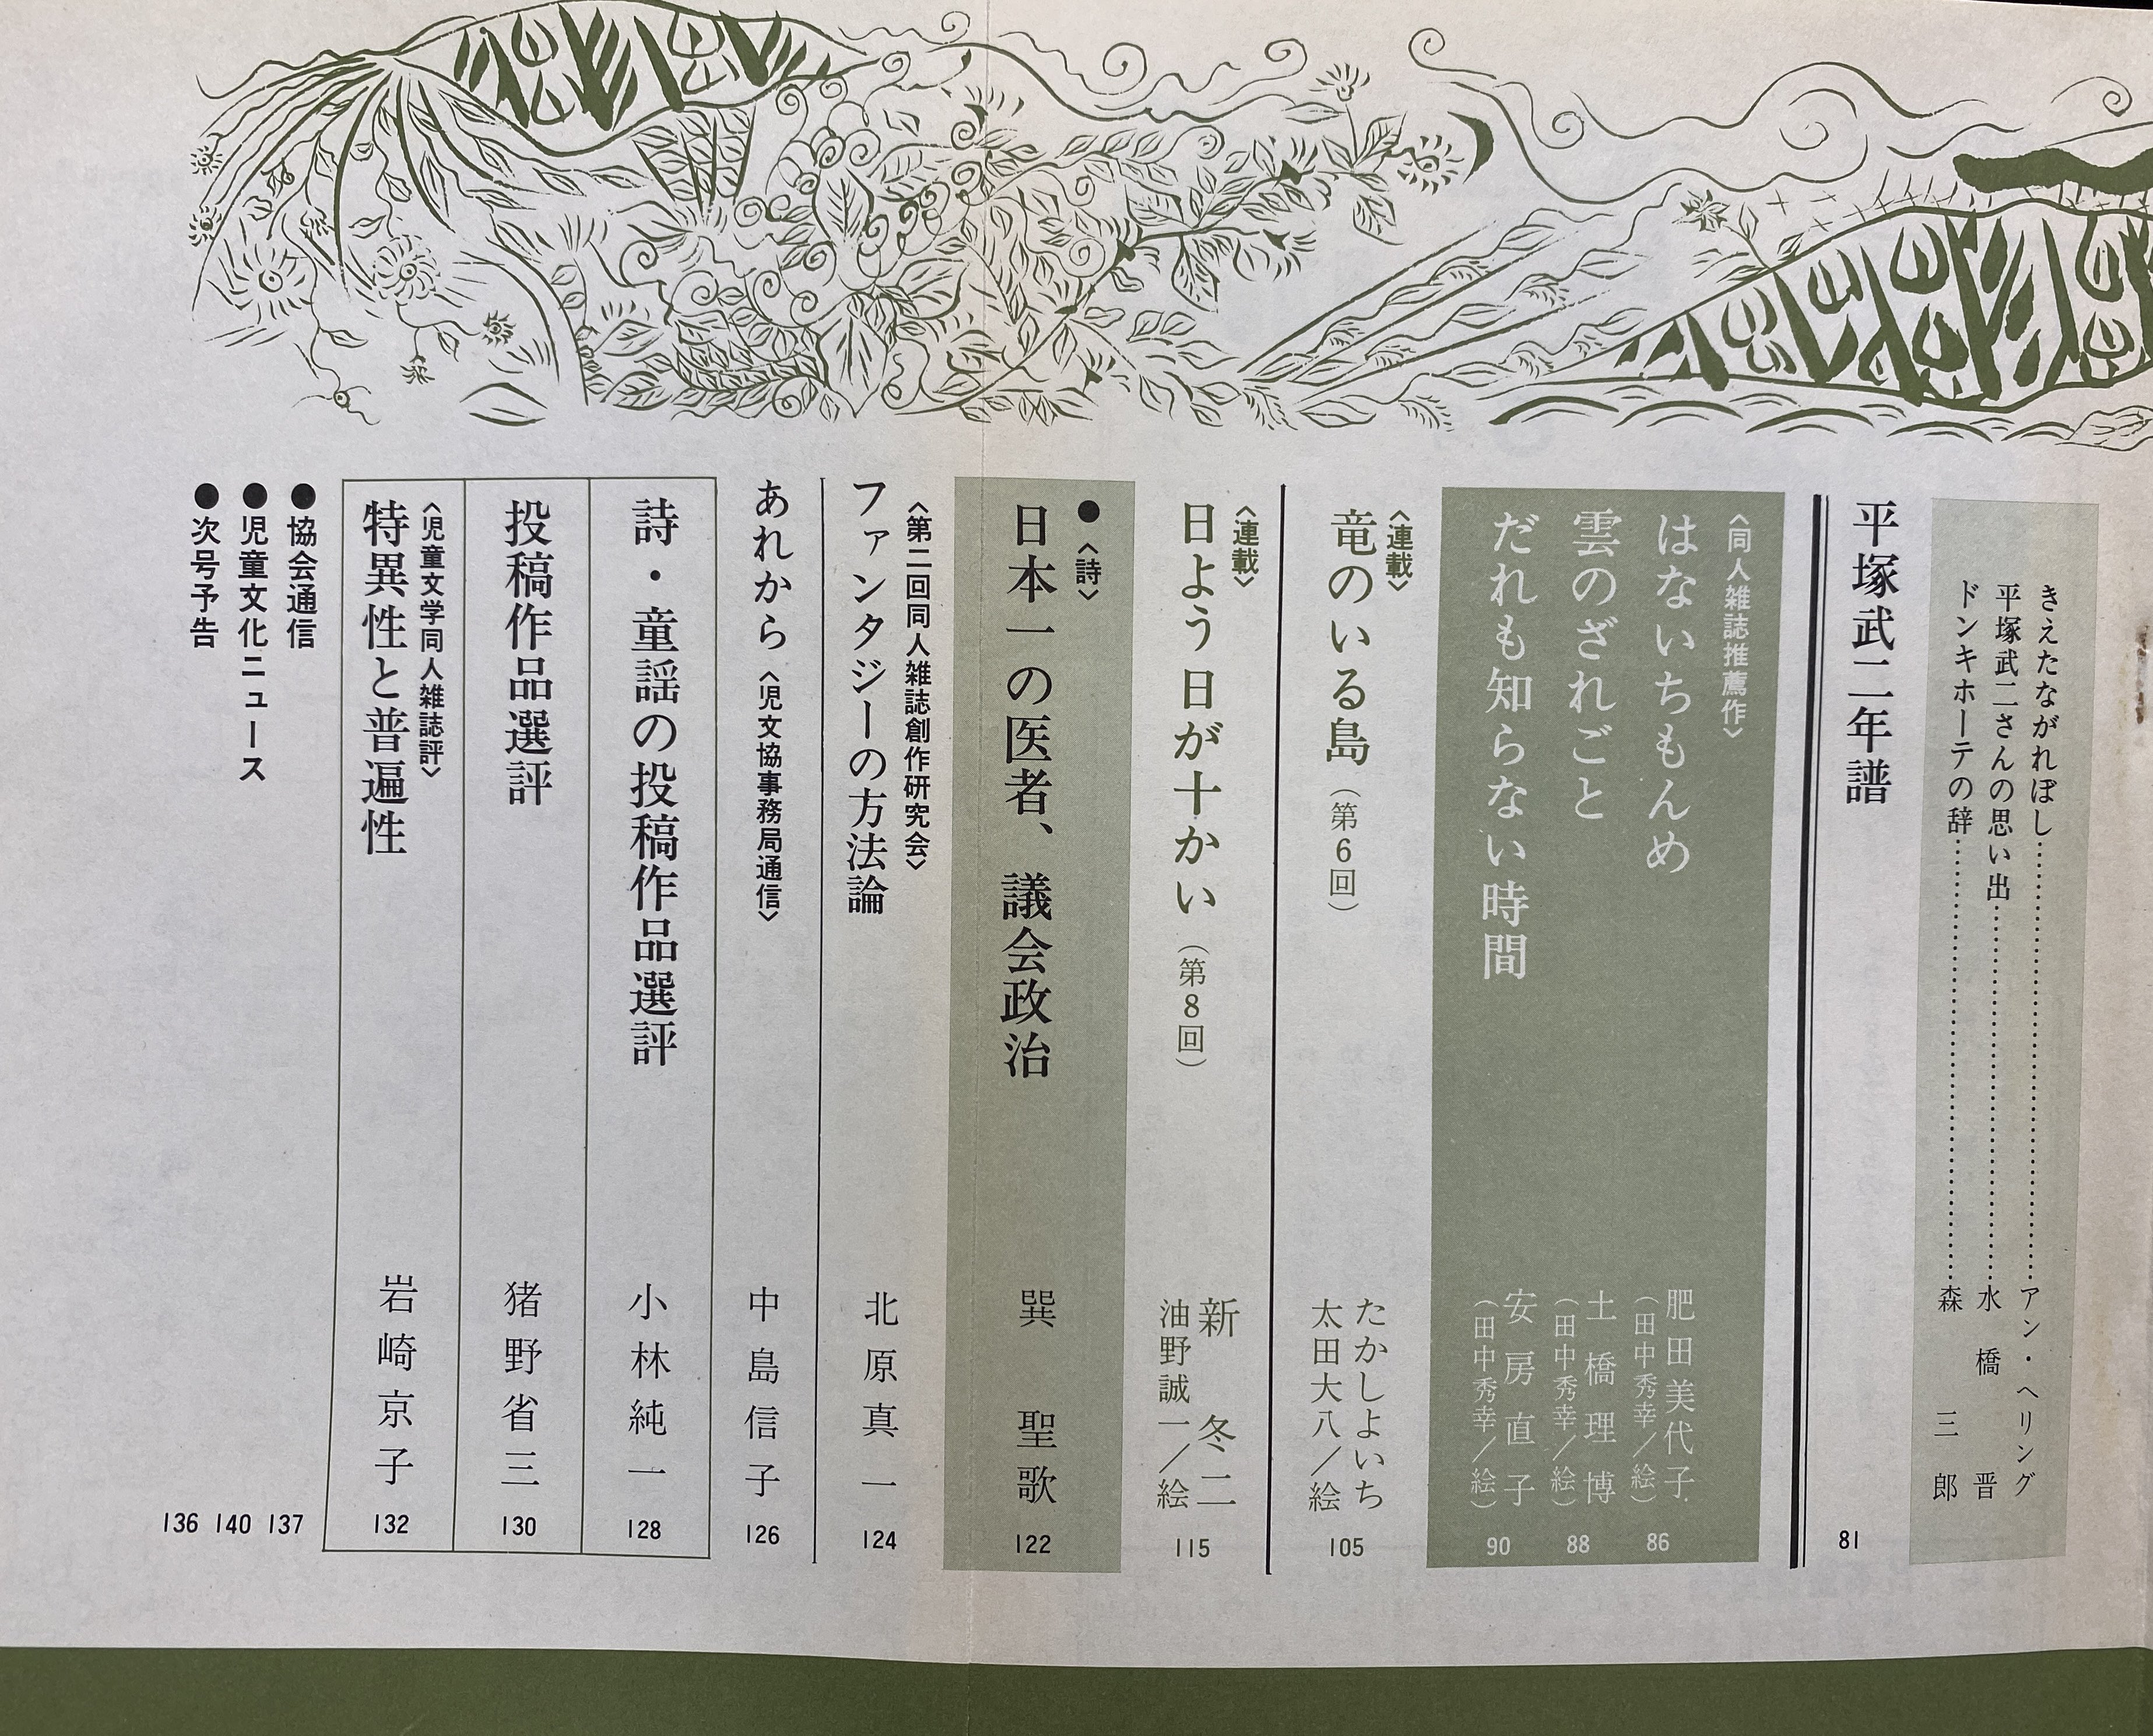 きえたながれぼし……………アン・ヘリング
平塚武二さんの思い出……………水橋晋
ドンキホーテの辞……………森三郎
平塚武二年譜 81
〈同人雑誌推薦作〉
はないちもんめ 肥田美代子
（田中秀幸／絵） 86
雲のざれごと 土橋理博
（田中秀幸／絵） 88
だれも知らない時間 安房直子
（田中秀幸／絵） 90
〈連載〉
竜のいる島（第6回） たかしよいち
太田大八／絵 105
〈連載〉
日よう日が十かい（第8回） 新冬二
油野誠一／絵 115
●〈詩〉
日本一の医者、議会政治 巽聖歌 122
〈第二回同人雑誌創作研究会〉
ファンタジーの方法論 北原真一 124
あれから〈児文協事務局通信〉 中島信子 126
詩・童謡の投稿作品選評 小林純一 128
投稿作品選評 猪野省三 130
〈児童文学同人雑誌評〉
特異性と普遍性 岩崎京子 132
●協会通信 137
●児童文化ニュース 140
●次号予告 136